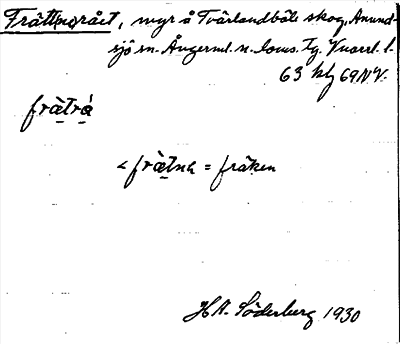 Frättnorået, myr å Tvärlandböle skog, Anund-
sjö sn. Ångerml. n. lovs. Tg. Vuorel. l.
63 kbg 69 NV.
frätrå
< frätna = fräken
H A. Söderberg 1930